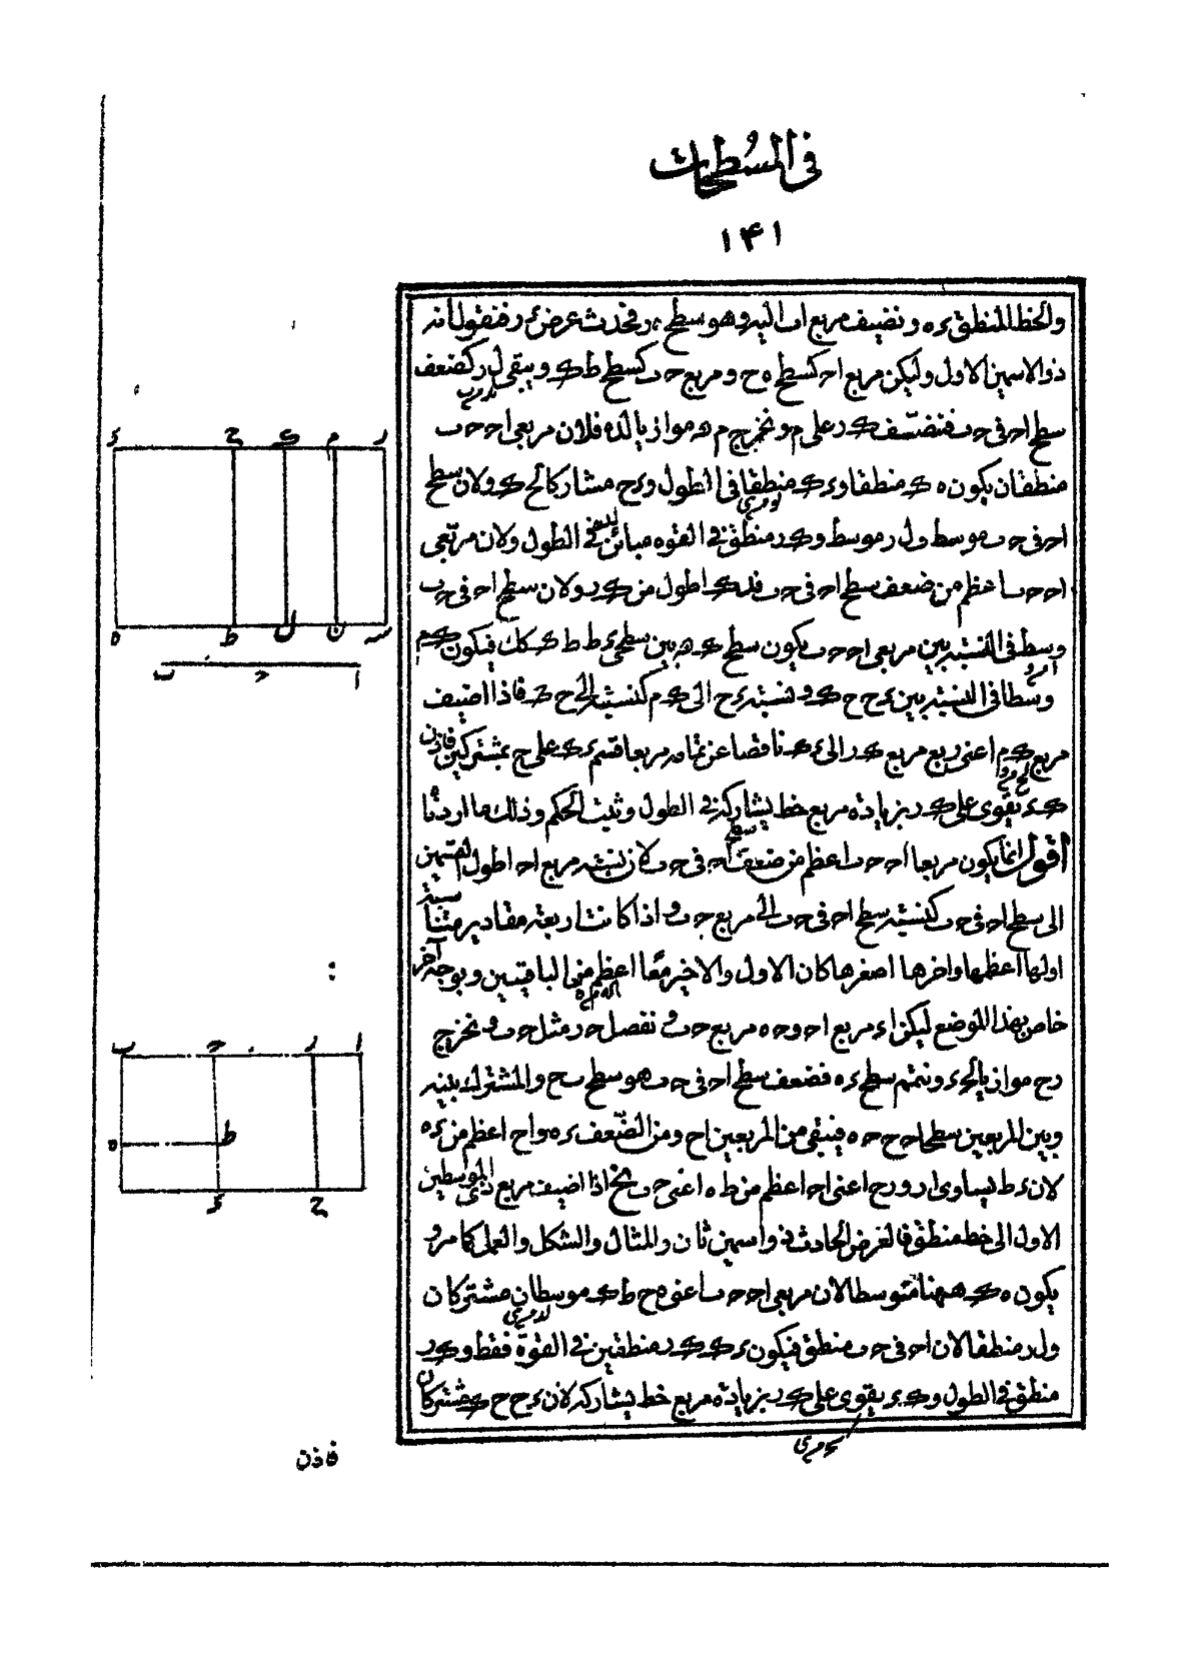 في المسطحات
١٤١
والخط المنطق ءه ونضيف مربع اب اليه وهو سطح ه ر فحدث عرض ء ر فنقول انه
ذو الاسمين الاول وليكن مربع اح كسطح ه ح ومربع ح ب كسطح ط ك ويبقى ل ر كضعف
سطح اح في ح ب فننصّف ك ر على م ونخرج م ن موازيا لده فلان مربعي اح ح ب
منطقان يكون ه ك منطقا و ء ك منطقا في الطول و ء ح مشاركا لح ك ولان سطح
اح في ح ب موسط و ل ر موسط و ك ر منطق في القوه مباين في الطول ولان مربعي
اح ح ب اعظم من ضعف سطح اح في ح ب فدك اطول من ك ر ولان سطح اح في ح ب
وسط في النسبة بين مربعي اح ح ب يكون سطح ك ن بين سطحي ء ط ط ك كك فيكون ك م
وسطا في النسبة بين ء ح ح ك و نسبة ء ح الى ك م كنسبته الى ح ك فاذا اضيف
مربع ك م اعني ربع مربع ك ر الى ء ك ناقصا عن تمامه مربعا قسم ء ك على ح بمشتركين فاذن
ك ء يقوى على ك ر بزيادة مربع خط يشاركه في الطول وثبت الحكم وذلك ما اردنا
اقول انما يكون مربعا اح ح ب اعظم من ضعف سطح اح في ح ب لان نسبة مربع اح اطول القسمين
الى سطح اح في ح ب كنسبة سطح اح في ح ب الى مربع ح ب و اذا كانت اربعة مقادير متناسبة
اولها اعظمها واخرها اصغرها كان الاول والاخير معًا اعظم من الباقيتين وبوجه آخر
خاص بهذا الموضع ليكن اء مربع اح و ح ه مربع ح ب و نفصل ح ر مثل ح ب و نخرج
رح موازيا لحء ونتمم سطح ءه فضعف سطح اح في ح ب هو سطح ب ح والمشترك بينه
وبين المربعين سطحا ح ح ح ه فيبقى من المربعين اح ومن الضّعف ءه و اح اعظم من ءه
لان ء ط يساوى ا ر و رح اعني اح اعظم من ط ه اعني ح ب يح اذا اضيف مربع ذي الموسطين
الاول الى خط منطق فالعرض الحادث ذو اسمين ثان والمثال والشكل والعمل كما مر و
يكون ه ك ههنا متوسطا لان مربعي اح ح ب اعني ه ح ط ك موسطان مشتركان
و ل ر منطقا لان اح في ح ب منطق فيكون ء ك ك ر منطقين في القوة فقط و ك ر
منطق في الطول و ك ء يقوى على ك ر بزيادة مربع خط يشاركه لان ء ح ح ك مشتركان
فاذن
ء ح ك م ر
ه ط ل ن س
ا ح ب
ا ر ح ب
ط ه
ح ء